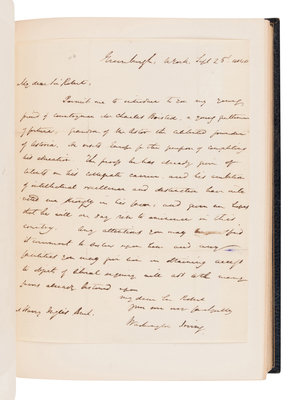 Sept 25th 1840
My dear Sir Robert,
Permit me to introduce to you my young
friend & countryman Mr Charles Bristed, a young gentleman
of fortune, grandson of Mr Astor the celebrated founder
of Astoria. He visits for the purpose of completing
his education. The proofs he has already given of
talents in his collegiate career, and his ambition
of intellectual excellence and distinction have
me strongly in his favor, and given me hopes
that he will one day rise to eminence in this
country. Any attentions you may
it convenient to bestow upon him and any
facilities you may give him in obtaining access
to depots of liberal inquiry will add to the many
favors already bestowed upon
my dear Sir Robert
yours ever most faithfully
Washington Irving
Sir Robert Inglis Bart.